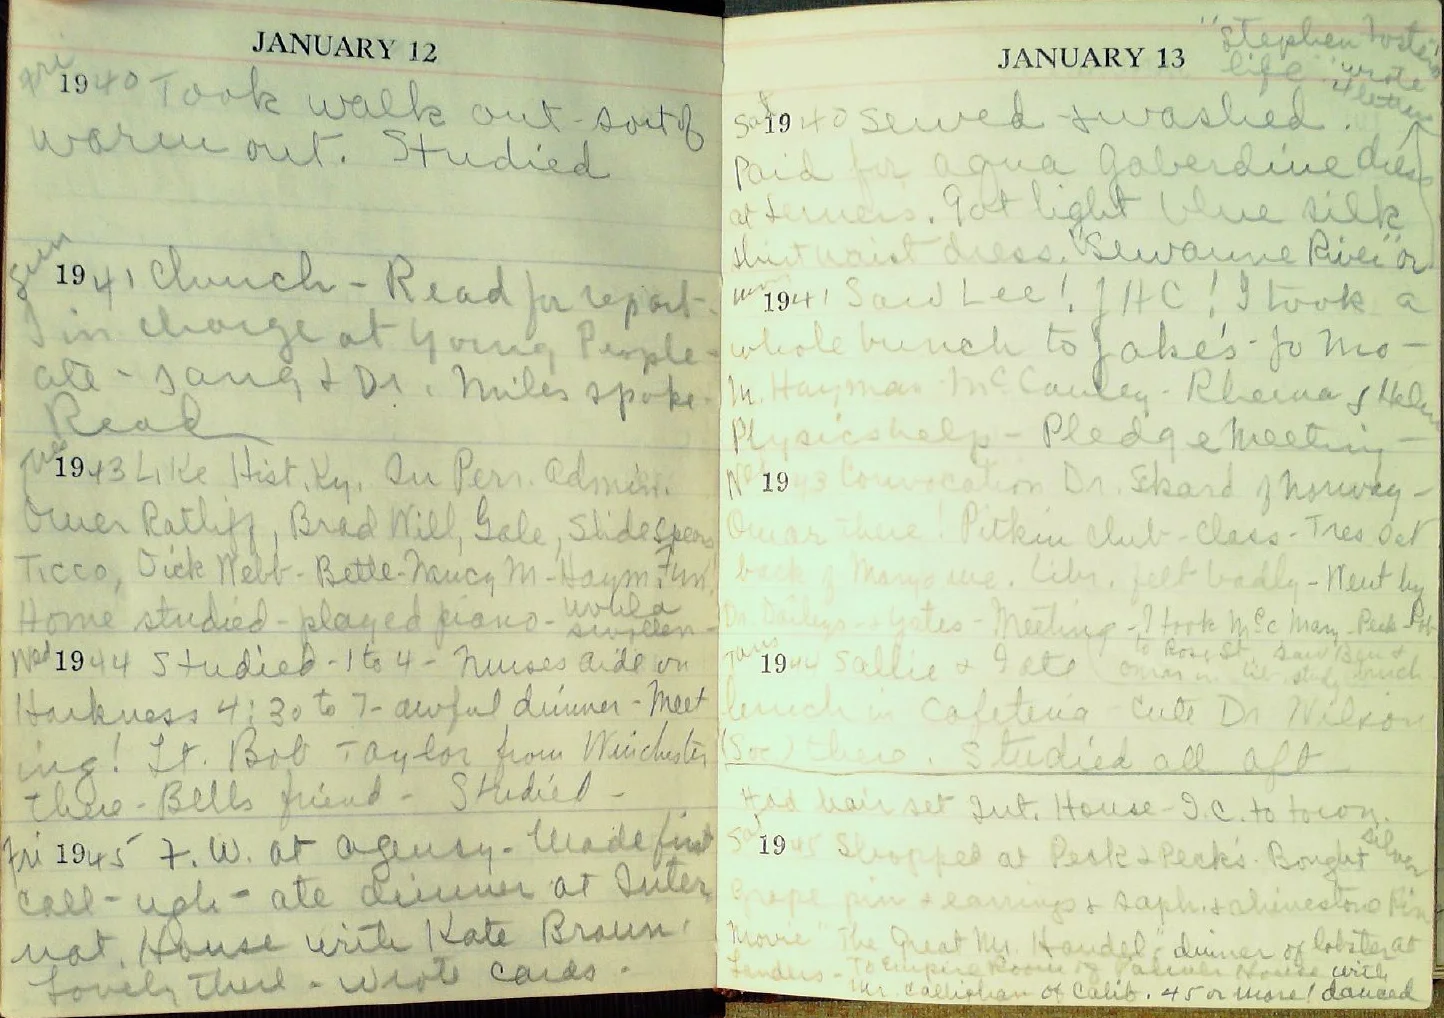 JANUARY 12
Fri 1940 Took walk out - sort of
warm out. Studied
Sun 1941 Church - Read for report -
I in charge at Young People -
ate - sang & Dr. Miles spoke.
Read
1943 Like Hist. Ky. In Pers. Admin.
Omer Ratliff, Brad Will, Gale, Slide Spears
Ticco, Dick Webb - Bette - Nancy M - Haym. Fun!
Home studied - played piano -
swollen -
Wed 1944 Studied - 1 to 4 - Nurses aide on
Harkness 4:30 to 7 - awful dinner - Meet
ing! Lt. Bob Taylor from Winchester
there - Bells friend - Studied -
Fri 1945 F.W. at agency - Made first
call - ugh - ate dinner at Inter
nat. House with Kate Braun.
Lovely there - wrote cards -
JANUARY 13
"Stephen Foster's
life" wrote
4 letters
Sat 1940 Sewed & washed.
Paid for aqua gaberdine dress
at Lerners. Got light blue silk
shirtwaist dress. "Sewanne River" or
Mon 1941 Saw Lee! J H C! I took a
whole bunch to Jake's - Jo Mo -
M. Hayman - McCauley - Rhema & Helen
Physics help - Pledge Meeting -
Wed 1943 Convocation Dr. Skard of Norway -
Omar there! Pitkin club - Class - Tres
back of Maryanne. Libr. felt badly - Went by
Dr. Daileys & Yates - Meeting - I took McC Mary - Peck -
to Rose St. saw Ben &
Omar in
1944 Sallie & I ate
lunch in Cafeteria Cute Dr Wilson
(Soc) there. Studied all aft
Had hair set Int. House - I.C. to town.
Sat 1945 Shopped at Peck & Peck's. Bought silver
grape pin & earrings & saph. & rhinestone Pin
Movie "The Great Mr. Handel." dinner of lobster at
- To Empire Room of Palmer House with
Mr. Callichan of Calif. 45 or more! danced